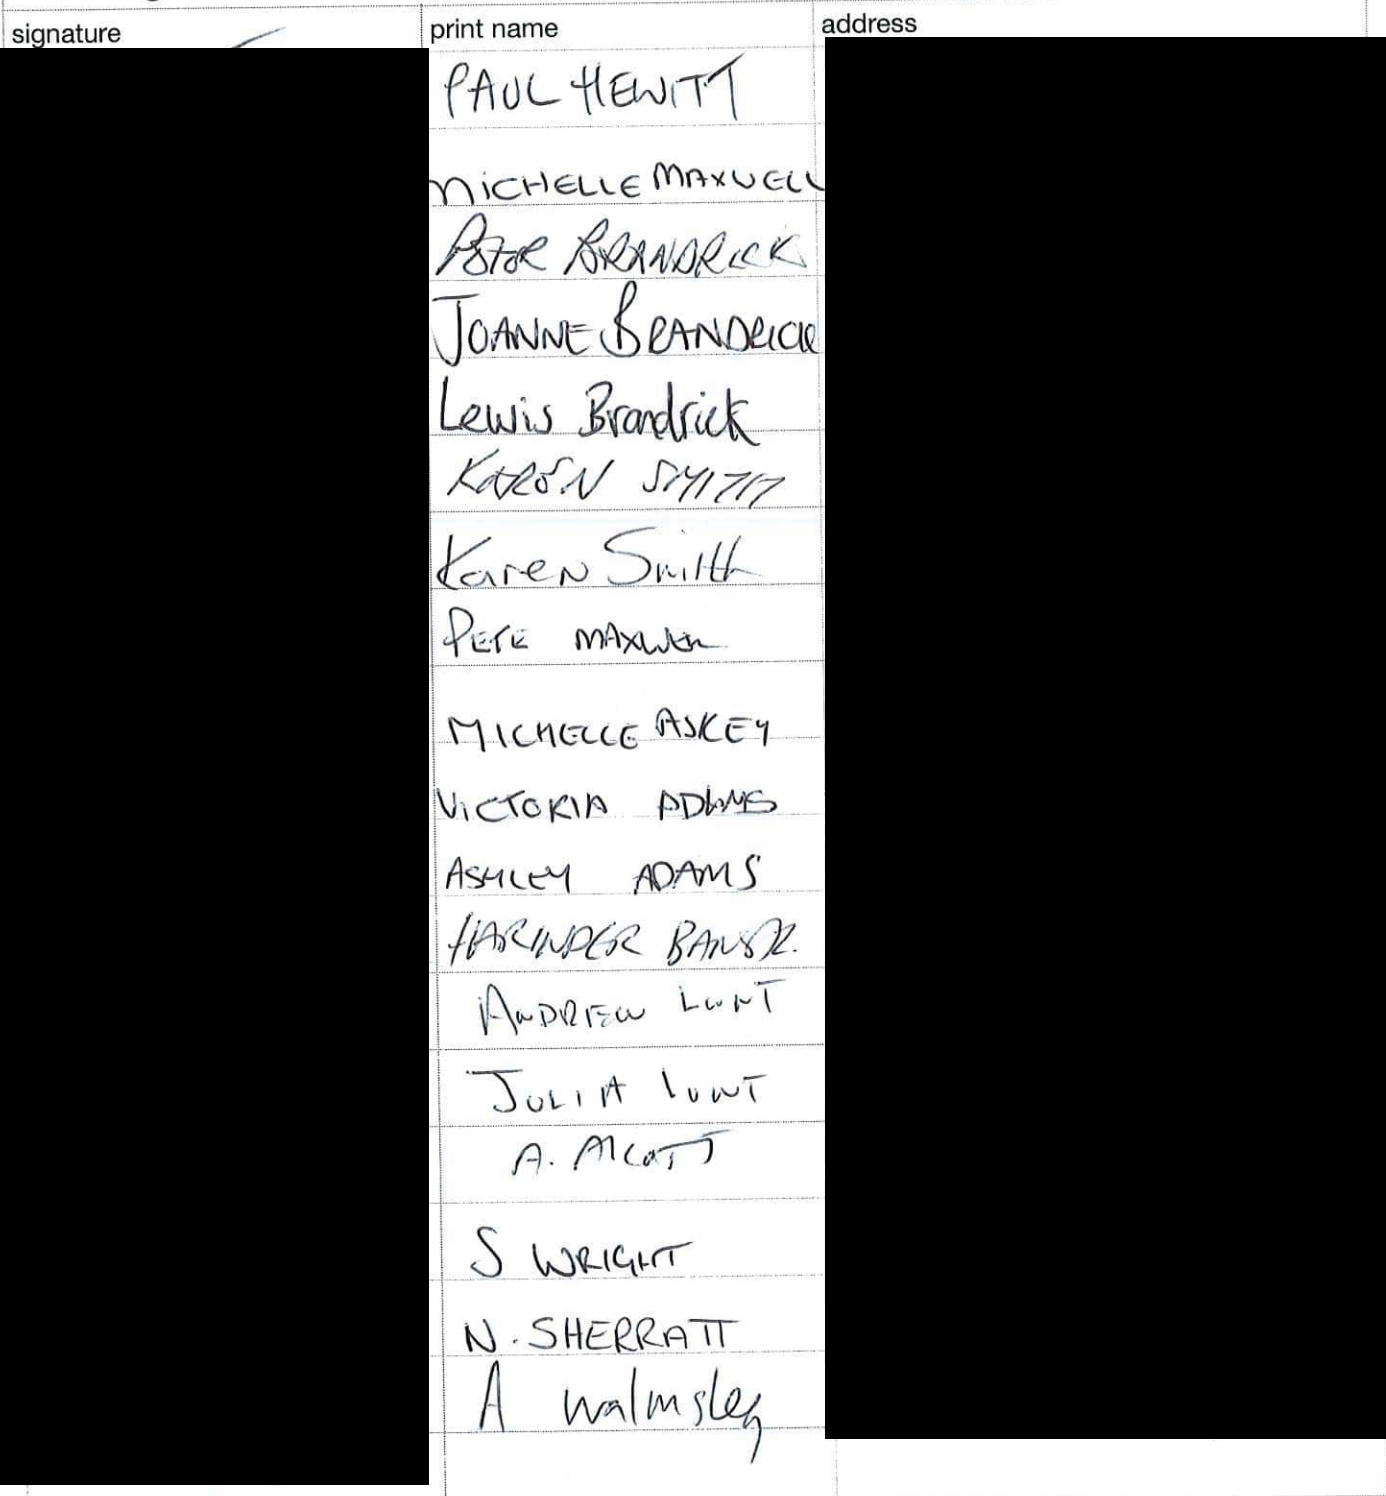 signature print name address
PAUL HEWITT
MICHELLE MAXWELL
PETER BRANDRICK
JOANNE BRANDRICK
Lewis Brandrick
KAREN SMITH
Karen Smith
PETE MAXWELL
MICHELLE ASKEY
VICTORIA ADAMS
ASHLEY ADAMS
HARINDER
ANDREW LUNT
JULIA LUNT
A. ALCOTT
S WRIGHT
N. SHERRATT
A Walmsley